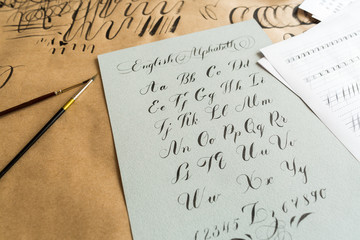 English Alphabeth
Aa Bb Cc Dd
Ee Ff Gg Hh Ii
Jj Kk Ll Mm
Nn Oo Pp Qq Rr
Ss Tt Uu Vv
Ww Xx Yy
Zz
1234567890